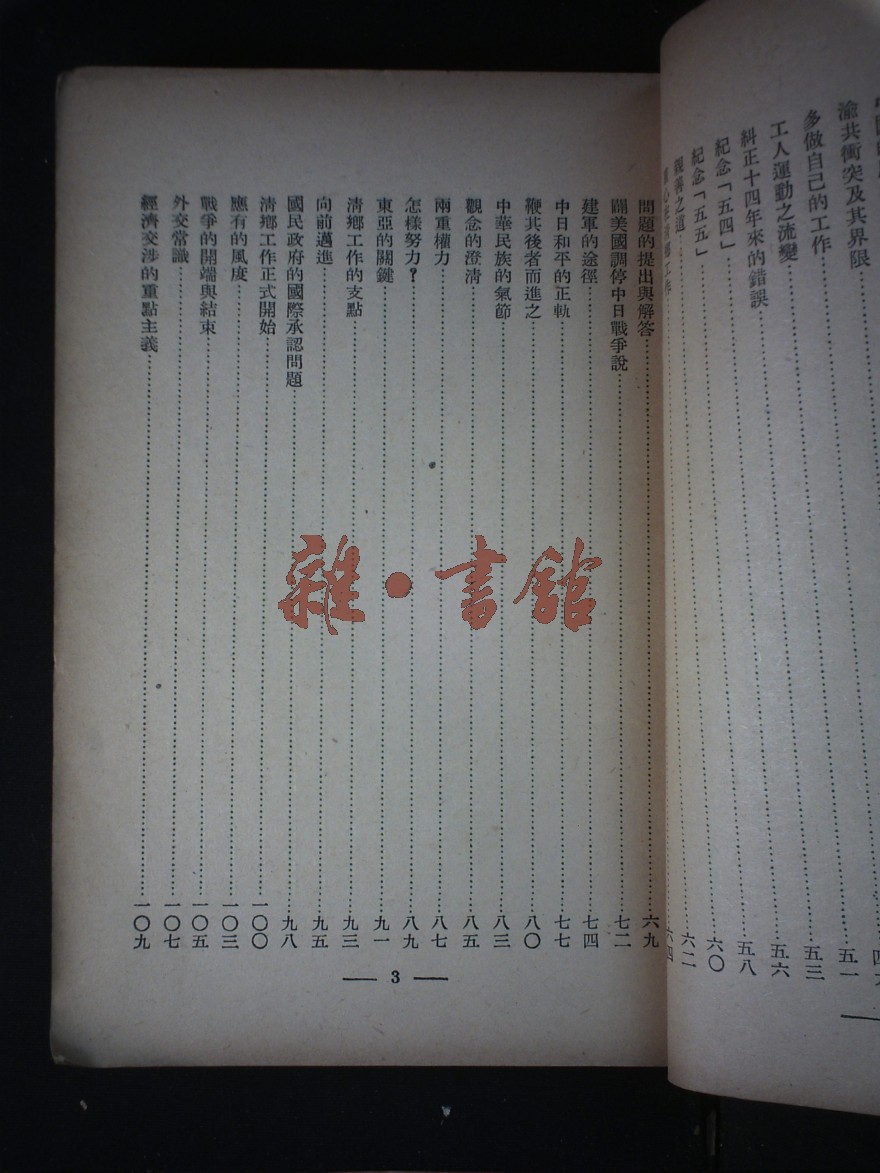 渝共衝突及其界限 五一
多做自己的工作 五三
工人運動之流變 五六
糾正十四年來的錯誤 五八
紀念「五四」 六〇
紀念「五五」 六二
親善之道 六四
問題的提出與解答 六九
闢美國調停中日戰爭說 七二
建軍的途徑 七四
中日和平的正軌 七七
鞭其後者而進之 八〇
中華民族的氣節 八三
觀念的澄清 八五
兩重權力 八七
怎樣努力？ 八九
東亞的關鍵 九一
清鄉工作的支點 九三
向前邁進 九五
國民政府的國際承認問題 九八
清鄉工作正式開始 一〇〇
應有的風度 一〇三
戰爭的開端與結束 一〇五
外交常識 一〇七
經濟交涉的重點主義 一〇九
3
雜·書館